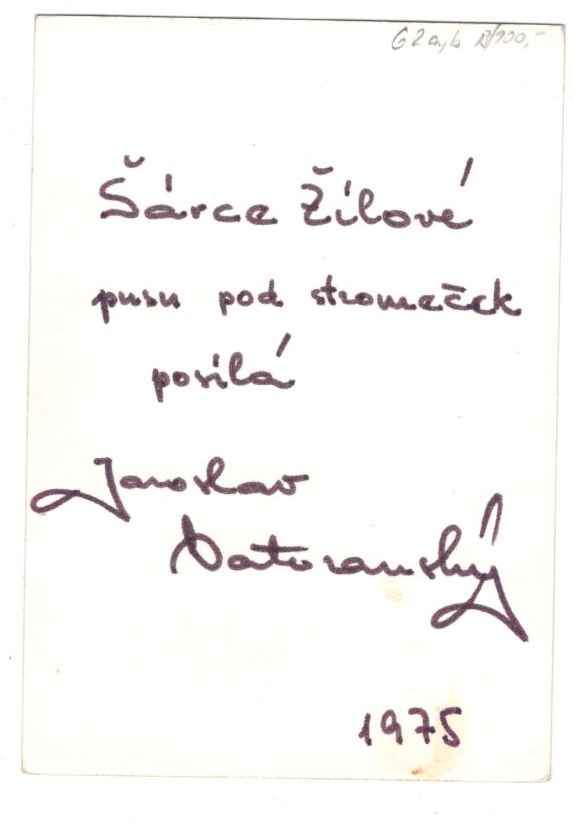 Šárce Žílové
pusu pod stromeček
posílá
Jaroslav
Satoranský
1975